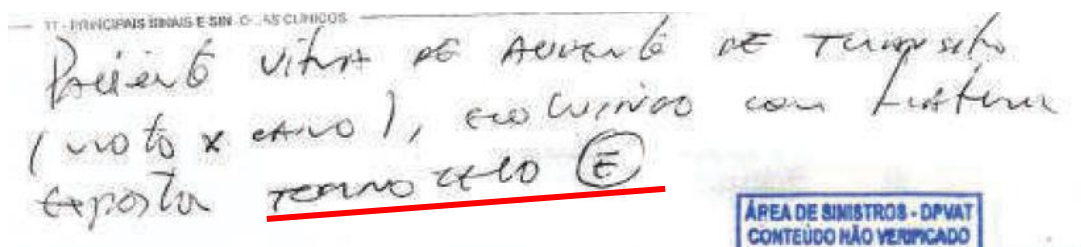 11 - PRINCIPAIS SINAIS E SINTOMAS CLÍNICOS
Paciente vítima de acidente de trânsito
(moto x carro), evoluindo com fratura
exposta tornozelo (E)
ÁREA DE SINISTROS - DPVAT
CONTEÚDO NÃO VERIFICADO